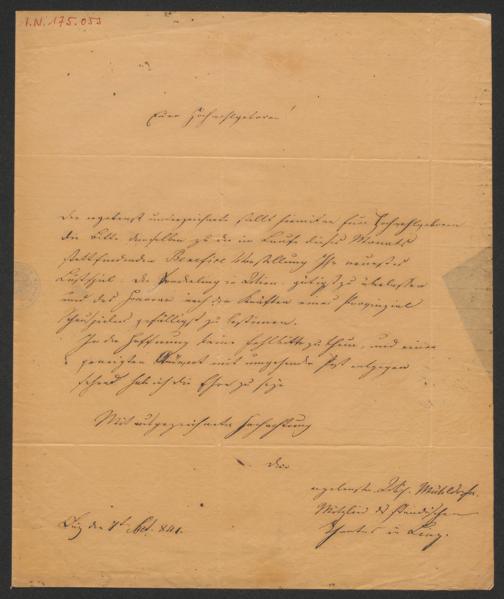 I.N. 175.053
Euer Hochwohlgeboren!
Der ergebenst unterzeichnete stellt hiermit an Euer Hochwohlgeboren
die Bitte demselben zu der im Laufe dieses Monats
stattfindenden Benefice Vorstellung Ihr neuestes
Lustspiel: gütigst zu überlassen
und das Honorar nach den Kräften eines Provinzial
gefälligst zu bestimmen.
In der Hoffnung keine Fehlbitte zu thun, und einer
geneigten Antwort mit umgehender Post entgegen
sehend hab ich die Ehre zu sein
Mit ausgezeichneter Hochachtung
Der
ergebenster Mühldorfer
Mitglied des ständischen
Theaters in Linz.
Linz den Oct. 841.